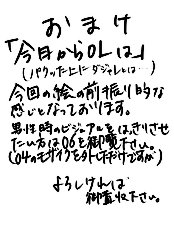 おまけ
「今日からOLは」
(パクッた上にダジャレとは…)
今回の絵の前振り的な
感じとなっております。
男性時のビジュアルをはっきりさせ
たい方は06を御覧下さい。
(04のモザイクをトレただけですが)
よろしければ
御覧下さい。